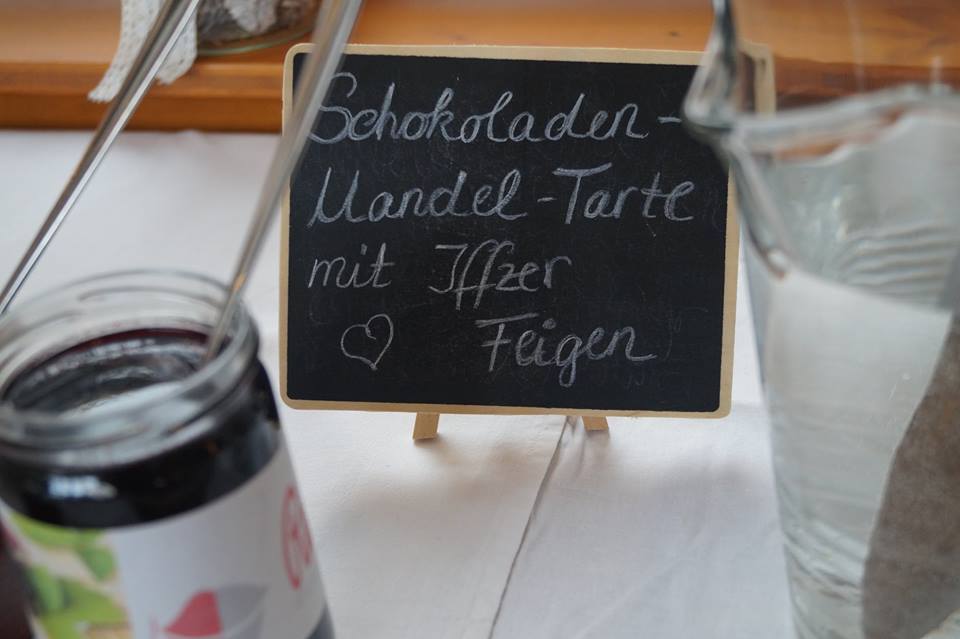 Schokoladen-
Mandel-Tarte
mit Iffzer
Feigen